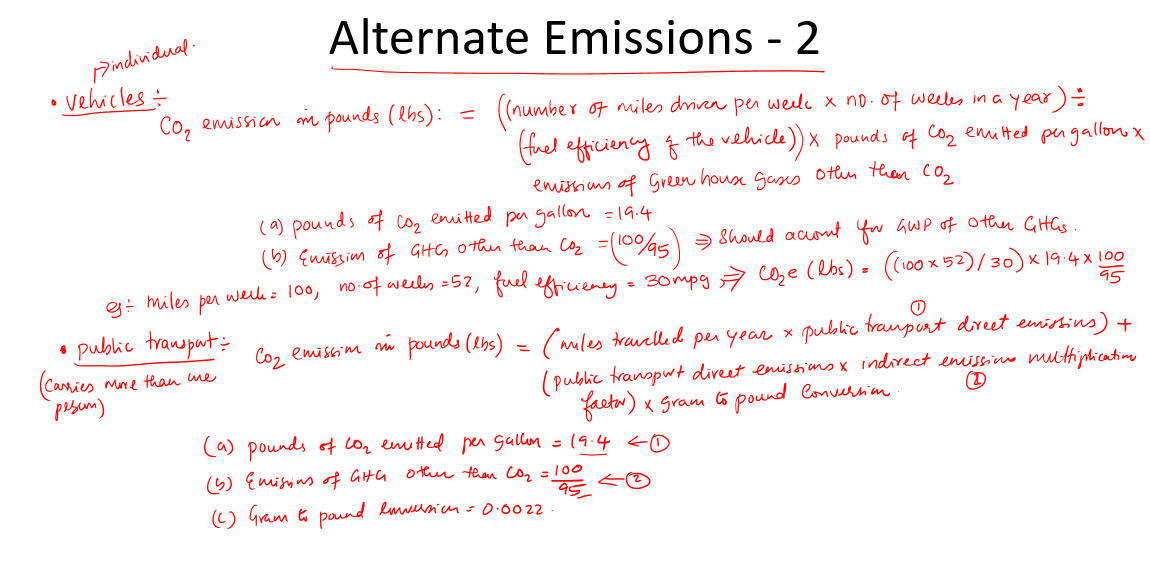 Alternate Emissions - 2
↦ individual.
• Vehicles ÷
CO₂ emission in pounds (lbs): = ((number of miles driven per week × no. of weeks in a year) ÷
(fuel efficiency of the vehicle)) × pounds of CO₂ emitted per gallon ×
emissions of Green house gases other than CO₂
(a) pounds of CO₂ emitted per gallon = 19.4
(b) Emission of GHGs other than CO₂ = (100/95) ⇒ Should account for GWP of other GHGs.
eg ÷ miles per week = 100, no. of weeks = 52, fuel efficiency = 30mpg ⇒ CO₂e (lbs) = ((100 × 52) / 30) × 19.4 × 100/95
• public transport ÷
(Carries more than one
person)
CO₂ emission in pounds (lbs) = (miles travelled per year × public transport direct emissions) + ①
(public transport direct emissions × indirect emissions multiplication ②
factor) × gram to pound Conversion.
(a) pounds of CO₂ emitted per gallon = 19.4 ← ①
(b) Emissions of GHG other than CO₂ = 100/95 ← ②
(c) Gram to pound conversion = 0.0022.